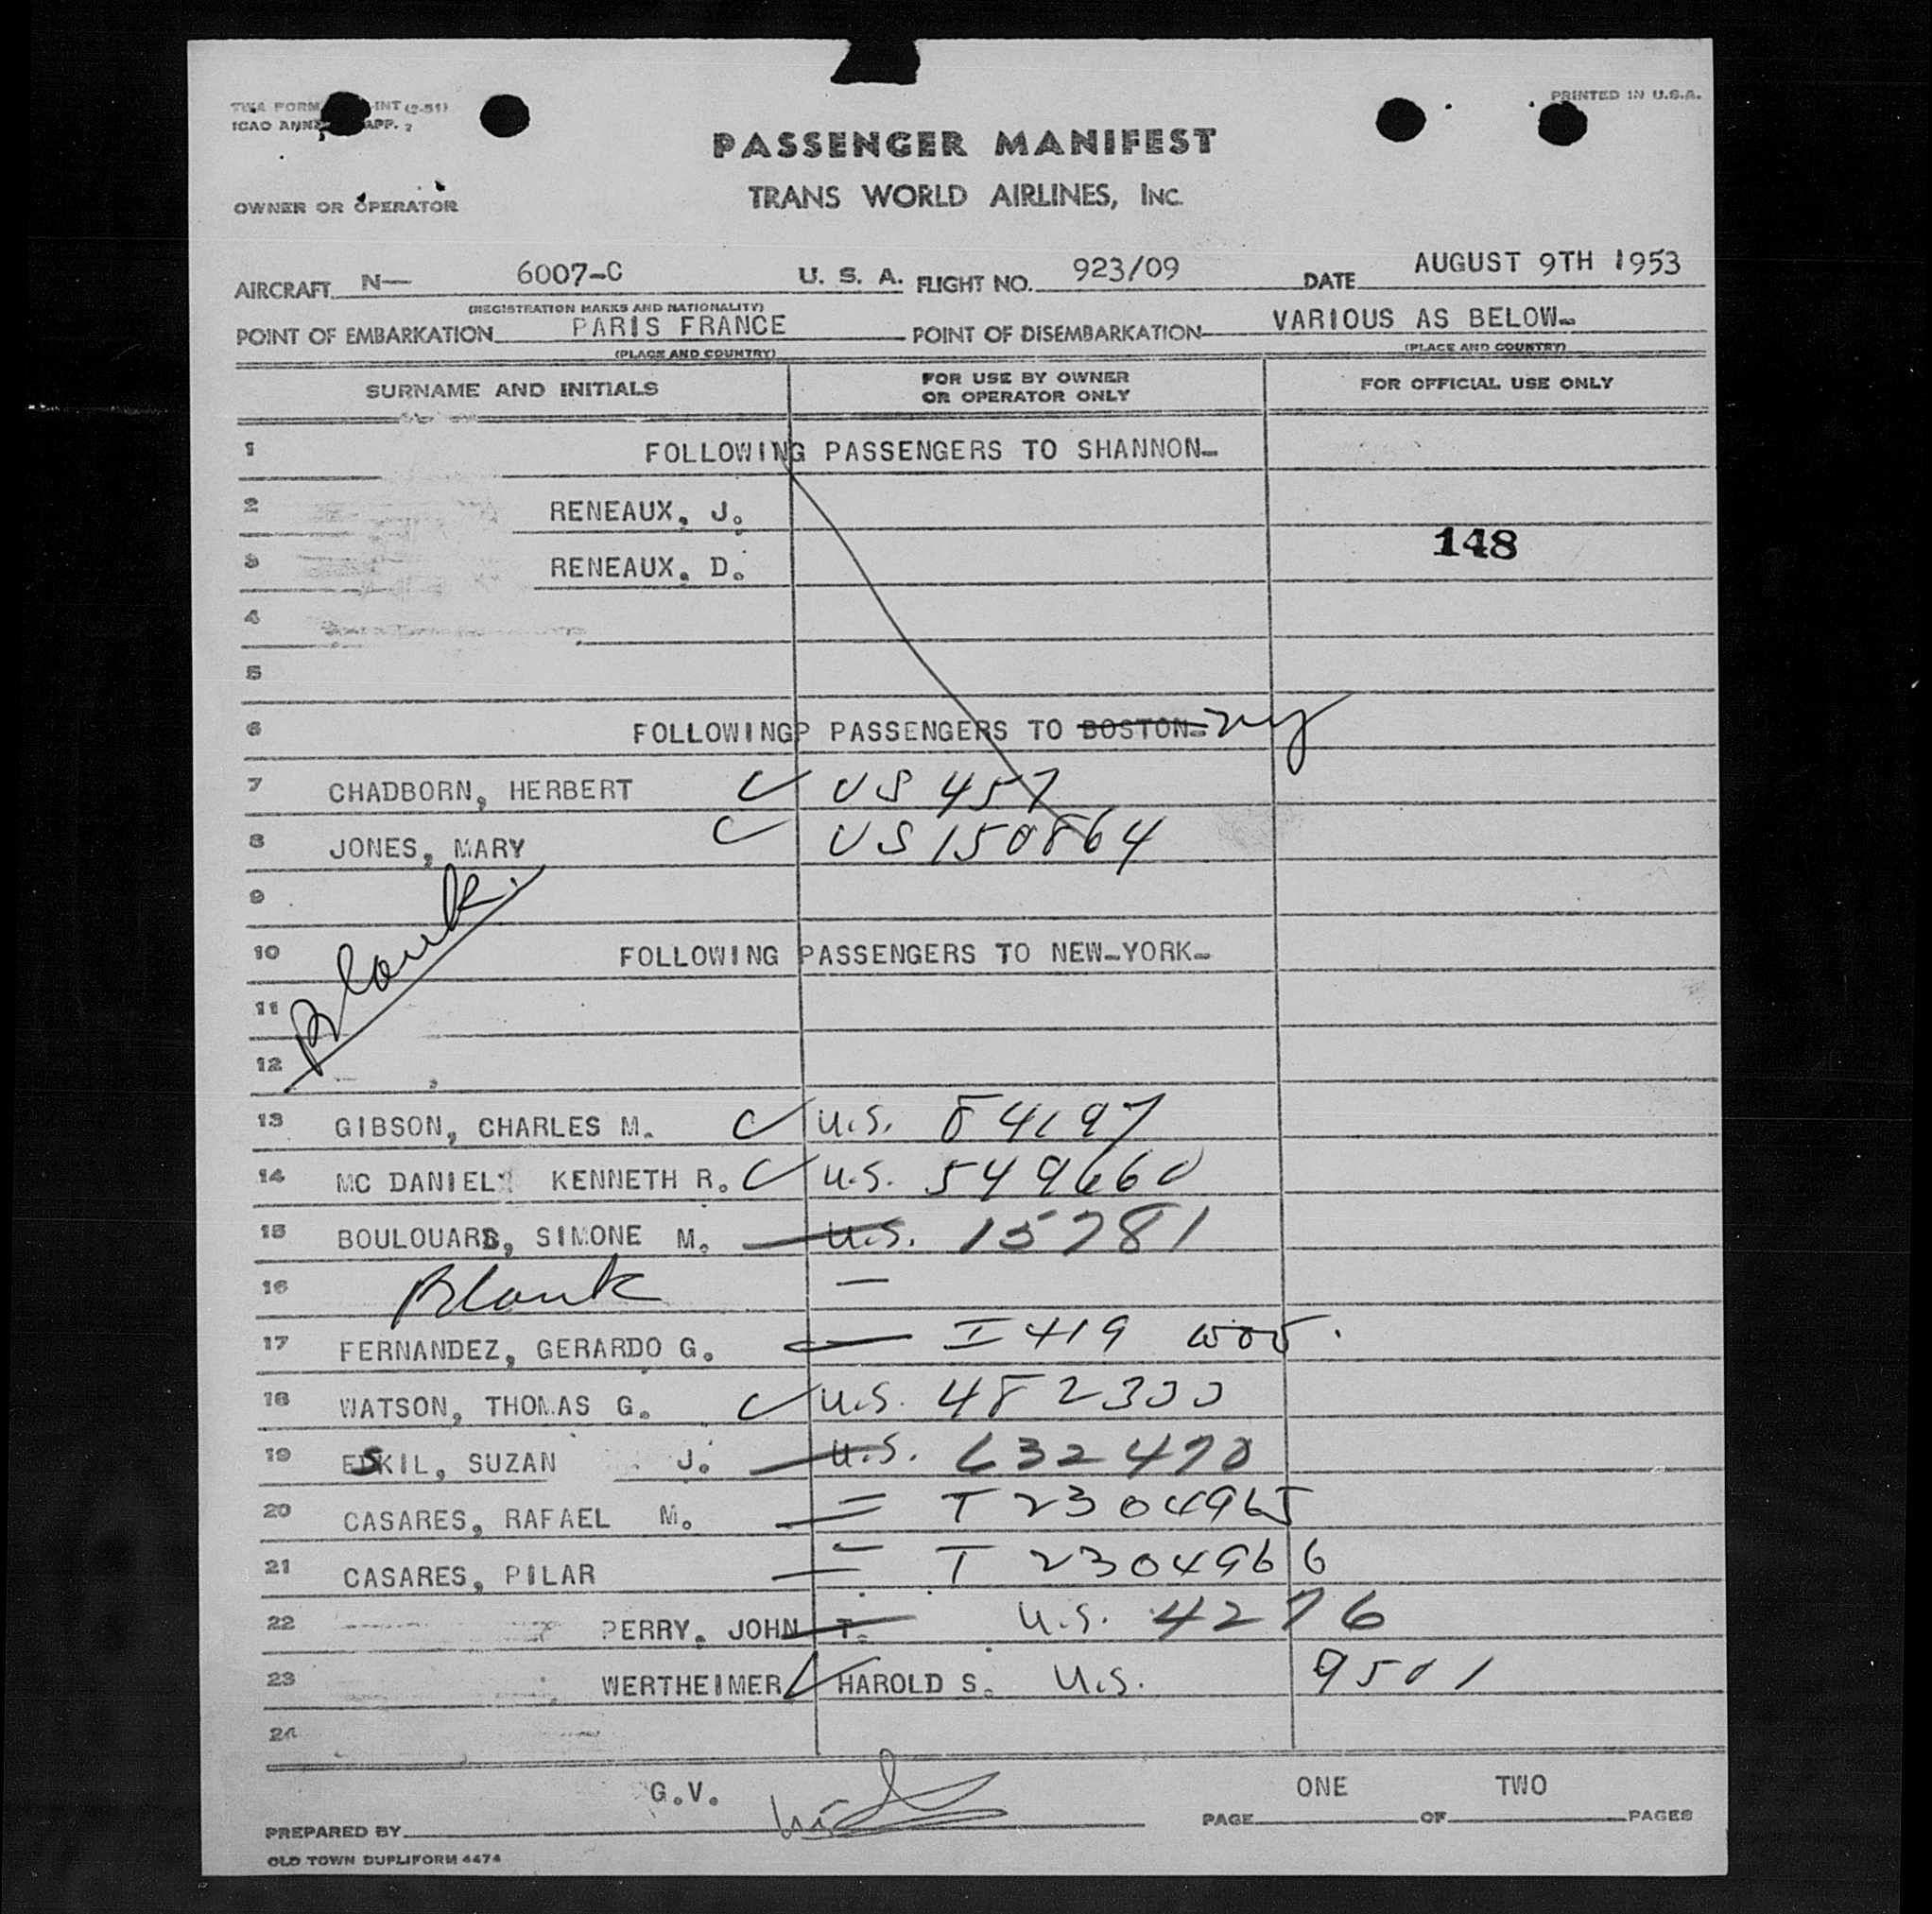 TWA FORM -INT (2-51)
ICAO ANNEX APP. 2
PRINTED IN U.S.A.
PASSENGER MANIFEST
TRANS WORLD AIRLINES, INC.
OWNER OR OPERATOR
AIRCRAFT N— 6007-C U. S. A. FLIGHT NO. 923/09 DATE AUGUST 9TH 1953
(REGISTRATION MARKS AND NATIONALITY)
POINT OF EMBARKATION PARIS FRANCE POINT OF DISEMBARKATION VARIOUS AS BELOW-
(PLACE AND COUNTRY) (PLACE AND COUNTRY)
SURNAME AND INITIALS FOR USE BY OWNER OR OPERATOR ONLY FOR OFFICIAL USE ONLY
1 FOLLOWING PASSENGERS TO SHANNON-
2 RENEAUX, J.
148
3 RENEAUX, D.
4
5
6 FOLLOWINGP PASSENGERS TO BOSTON- ny
7 CHADBORN, HERBERT US 457
8 JONES, MARY US 150864
9
Blank.
10 FOLLOWING PASSENGERS TO NEW-YORK-
11
12
13 GIBSON, CHARLES M. U.S. 84197
14 MC DANIEL KENNETH R. U.S. 549660
15 BOULOUARD, SIMONE M. U.S. 15781
16 Blank —
17 FERNANDEZ, GERARDO G. I 419
18 WATSON, THOMAS G. U.S. 482300
19 ESKIL, SUZAN J. U.S. 632470
20 CASARES, RAFAEL M. T 2304965
21 CASARES, PILAR T 2304966
22 PERRY, JOHN T. U.S. 4276
23 WERTHEIMER HAROLD S. U.S. 9501
24
G.V. ONE TWO
PREPARED BY PAGE OF PAGES
OLD TOWN DUPLIFORM 4474